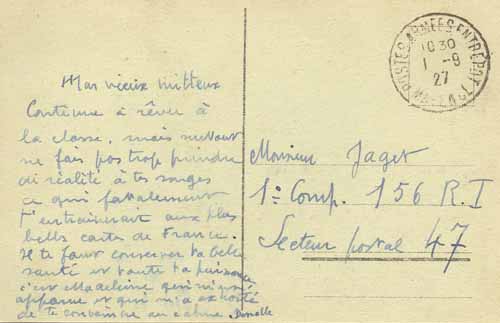 Mon vieux
Continue à rêver à
la classe, mais surtout
ne fais pas trop prendre
de réalité à tes songes
ce qui fatalement
t'entrainerait aux plus
bells cartes de France.
Il te faut conserver ta belle
santé et toute ta puissance
c'est Madeleine qui
et qui m'a exhorté
de te au calme
POSTES ARMEES ENTREPOT
10 30
1 - 9
27
Monsieur Jaget
1º Comp. 156 R.I
Secteur postal 47